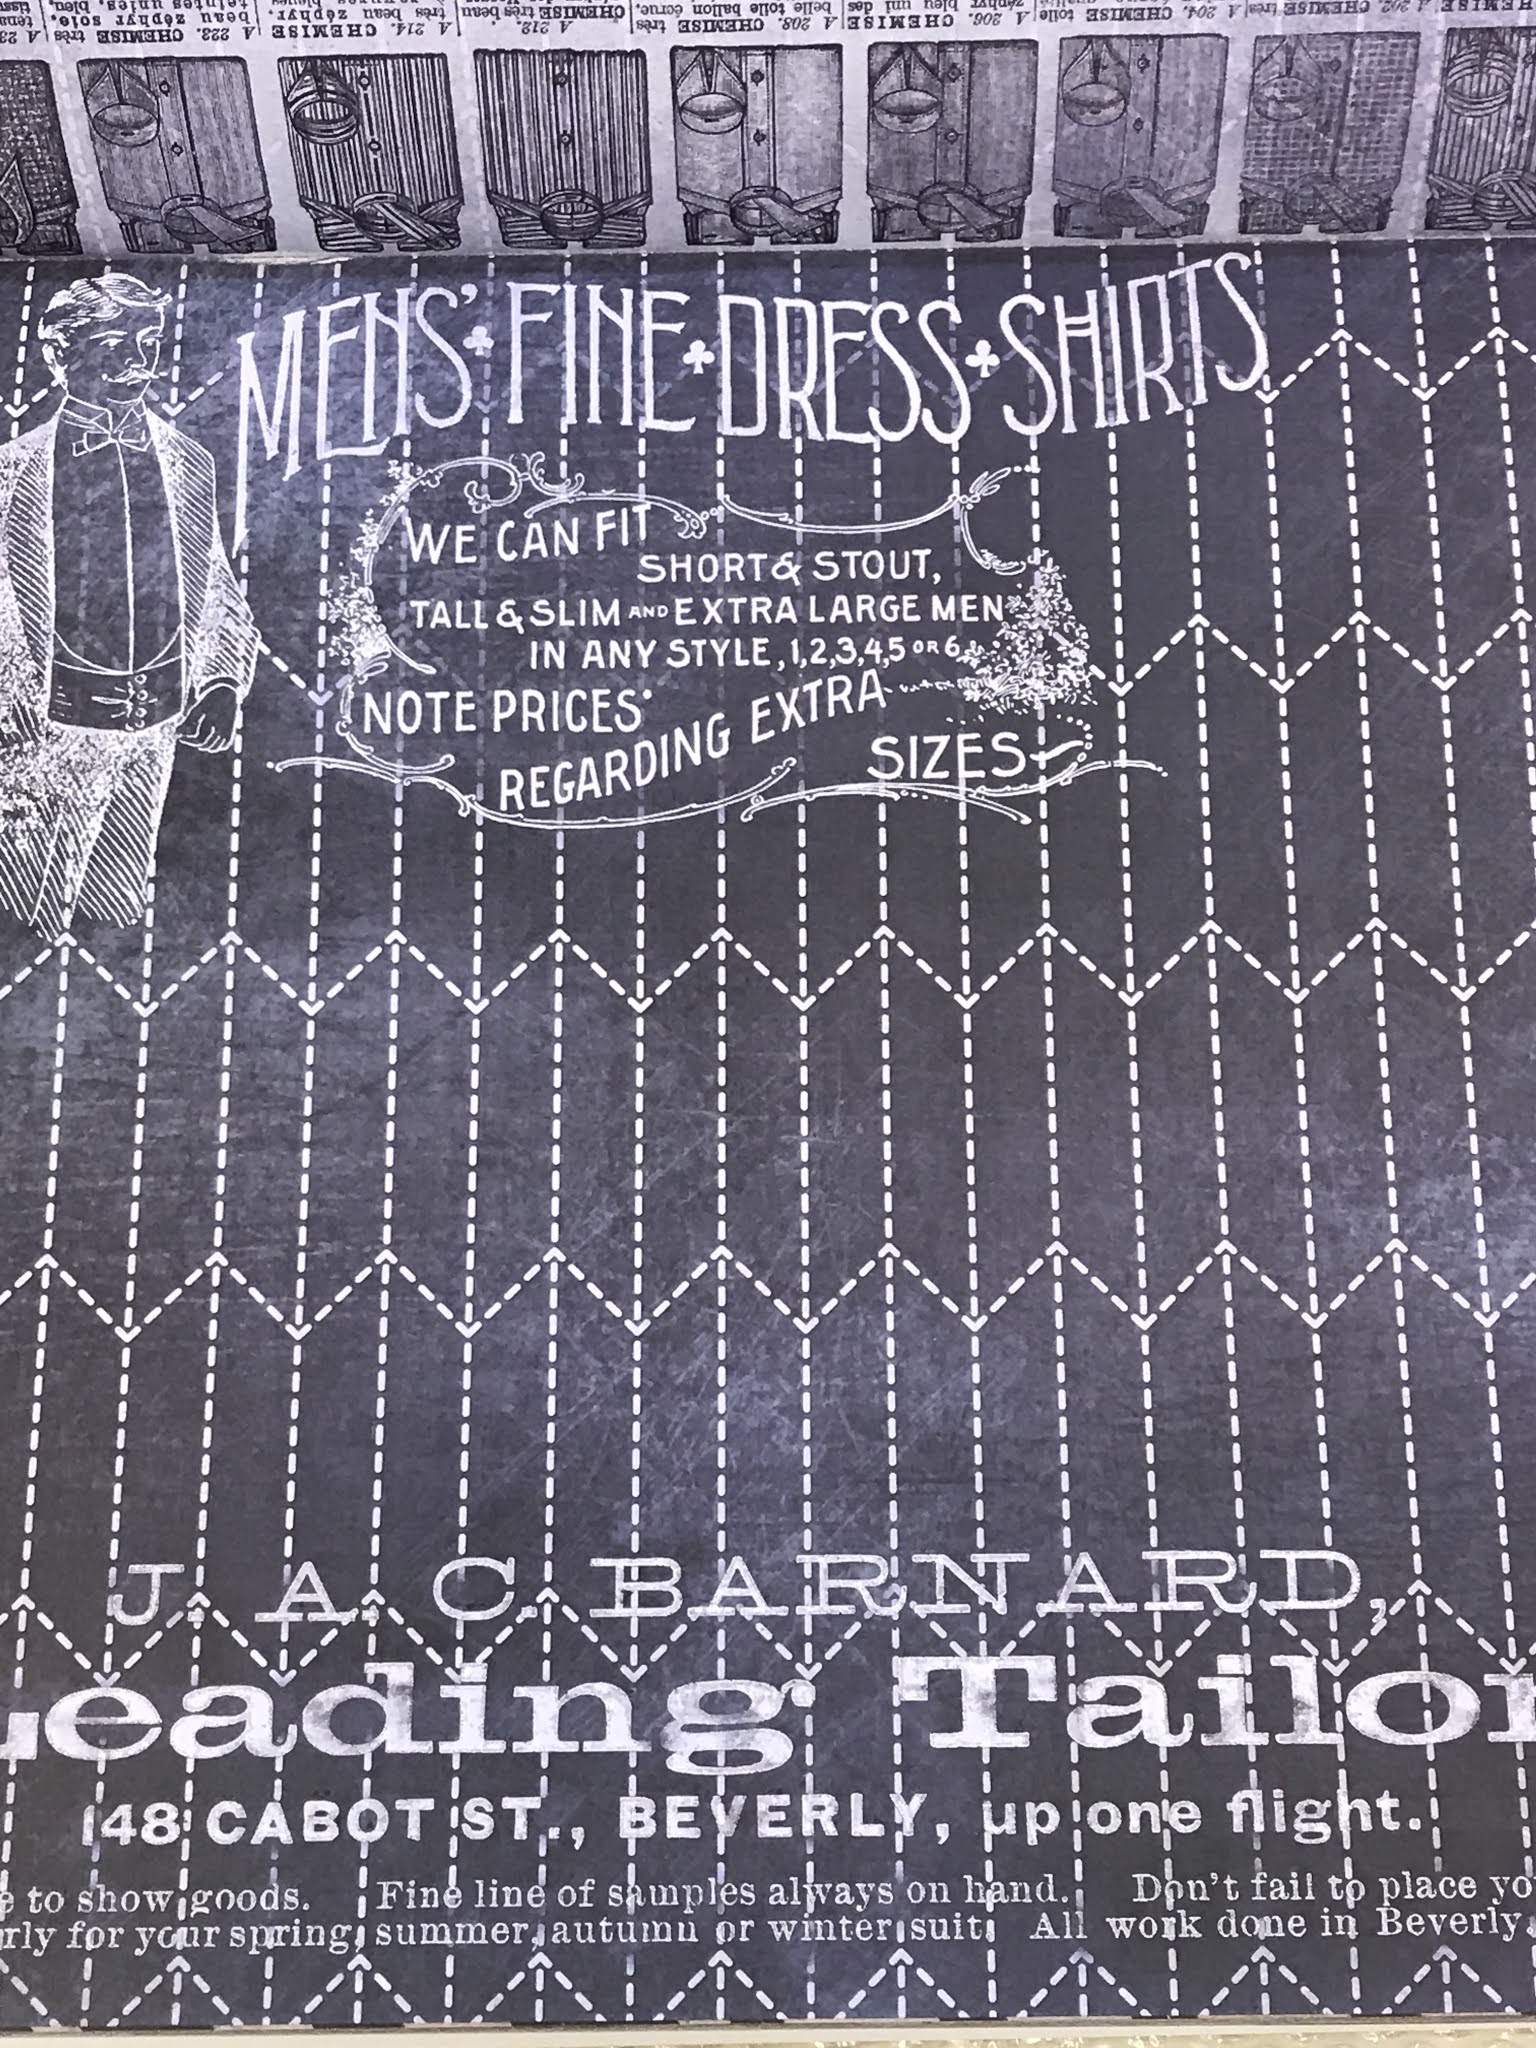 CHEMISE
A 202. CHEMISE
A 204. CHEMISE toile
A 206. CHEMISE
zéphyr bleu uni des
A 208. CHEMISE très
belle toile ballon écrue,
A 212.
CHEMISE très beau
A 214. CHEMISE
très beau zéphyr,
A 223. CHEMISE très
beau zéphyr soie,
teintes unies, bleu,
MENS' FINE DRESS SHIRTS
WE CAN FIT
SHORT & STOUT,
TALL & SLIM AND EXTRA LARGE MEN
IN ANY STYLE, 1,2,3,4,5 OR 6
NOTE PRICES
REGARDING EXTRA
SIZES
J. A. C. BARNARD,
Leading Tailor
148 CABOT ST., BEVERLY, up one flight.
to show goods. Fine line of samples always on hand. Don't fail to place yo
rly for your spring, summer, autumn or winter suit. All work done in Beverly.